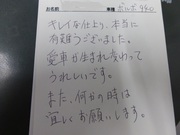 お名前 車種 ボルボ 940
キレイな仕上り、本当に
有難うございました。
愛車が生まれ変わって
うれしいです。
また、何かの時は
宜しくお願いします。